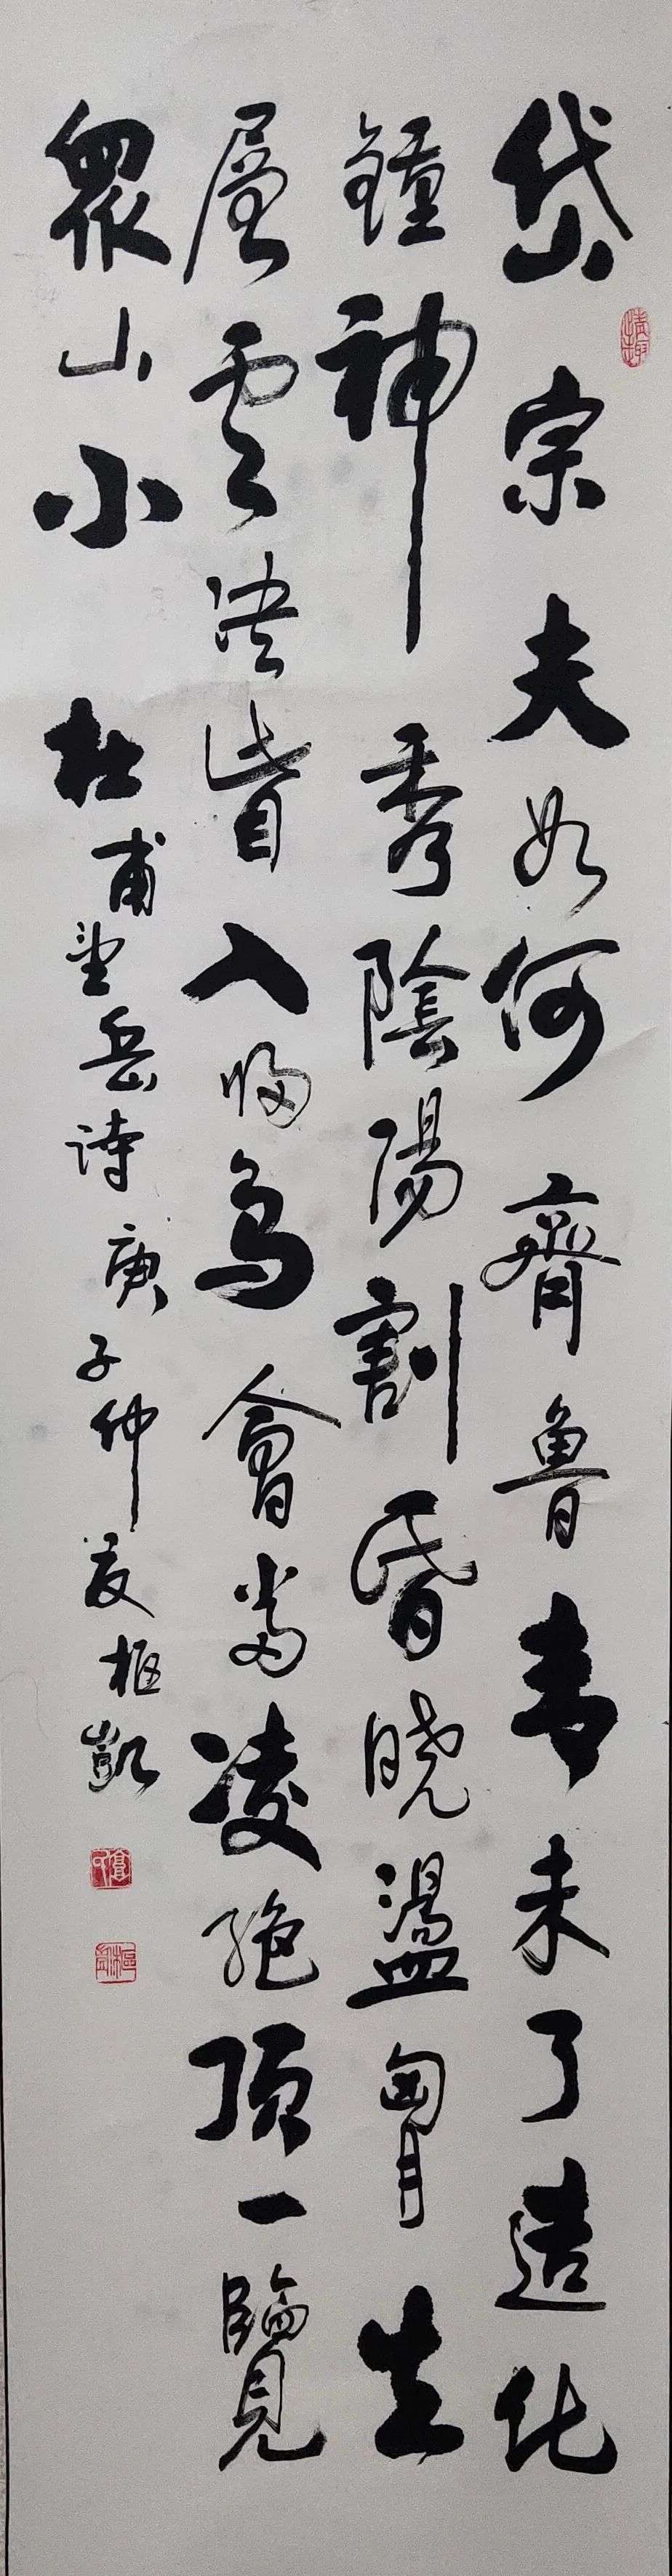 岱宗夫如何齊魯青未了造化
鍾神秀陰陽割昏曉盪胷生
層雲決眥入歸鳥會當凌絕頂一覽
眾山小 杜甫望岳詩庚子仲夏樞凱